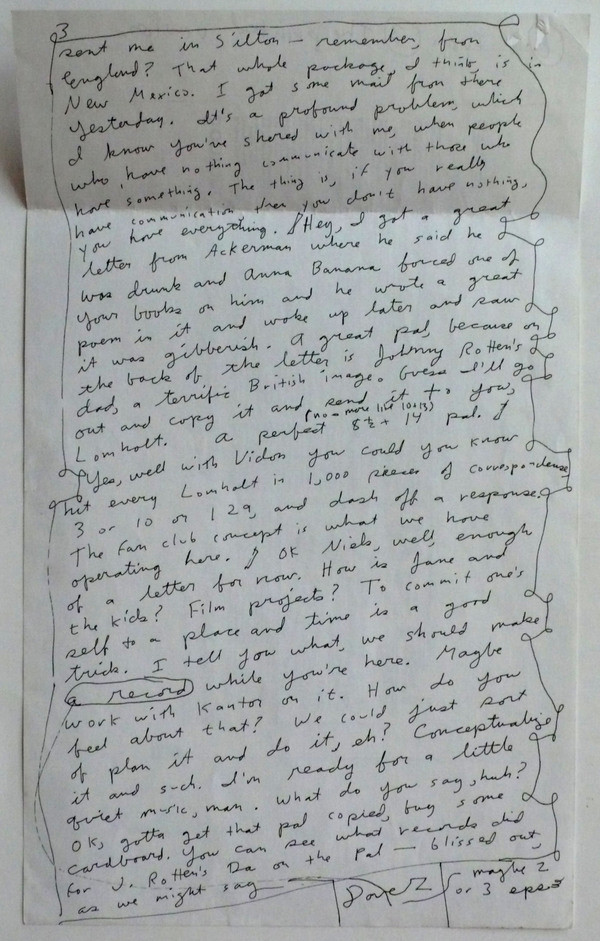 3
sent me in Silton — remember, from
England? That whole package, I think, is in
New Mexico. I got some mail from there
yesterday. It's a profound problem, which
I know you've shared with me, when people
who have nothing communicate with those who
have something. The thing is, if you really
have communication then you don't have nothing,
you have everything. ¶ Hey, I got a great
letter from Ackerman where he said he
was drunk and Anna Banana forced one of
your books on him and he wrote a great
poem in it and woke up later and saw
it was gibberish. A great pal, because on
the back of the letter is Johnny Rotten's
dad, a terrific British image. Guess I'll go
out and copy it and send it to you,
(no - more like 10x13)
Lomholt. A perfect 8½ x 14 pal. ¶
Yes, well with Vidos you could you know
hit every Lomholt in 1,000 pieces of correspondence,
3 or 10 or 129, and dash off a response.
The fan club concept is what we have
operating here. ¶ OK Niels, well, enough
of a letter for now. How is Jane and
the kids? Film projects? To commit one's
self to a place and time is a good
trick. I tell you what, we should make
a record while you're here. Maybe
work with Kantor on it. How do you
feel about that? We could just sort
of plan it and do it, eh? Conceptualize
it and such. I'm ready for a little
quiet music, man. What do you say, huh?
OK, gotta get that pal copied, buy some
cardboard. You can see what records did
for J. Rotten's Da on the pal — blissed out,
as we might say —
Dave Z
maybe 2
or 3 epses